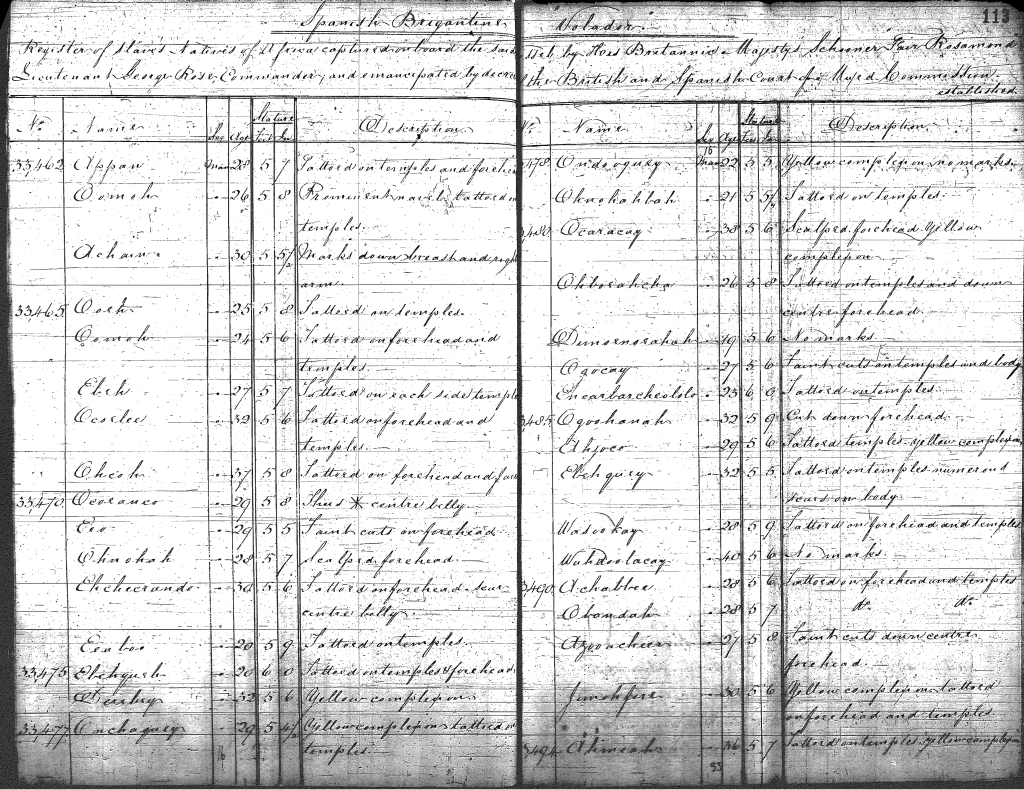 113
Spanish Brigantine
Register of Slaves Natives of Africa captured on board the said
Lieutenant George Rose Commander, and emancipated by decree
No. Name Sex Age Stature Ft. In. Description
33,462 Appan Man 28 5 7 Tattoed on temples and forehead
Oomoh 26 5 8 Prominent navel tattoed on
temples.
Achain 30 5 5½ Marks down breast and right
arm.
33,465 Ooch 25 5 8 Tattoed on temples.
Oomoh 24 5 6 Tattoed on forehead and
temples.
Ebeh 27 5 7 Tattoed on each side temple
32 5 6 Tattoed on forehead and
temples.
Oheoh 37 5 8 Tattoed on forehead and face
33,470 Ocoranco 29 5 8 Thus centre belly.
Eeo 29 5 5 Faint cuts on forehead.
Ohnohah 28 5 7 Scalped forehead.
30 5 6 Tattoed on forehead scar
centre belly.
Eeaboo 28 5 9 Tattoed on temples.
33,475 6 0 Tattoed on temples & forehead
32 5 6 Yellow complexion.
33,477 Onchaquey 29 5 Yellow complexion tattoed on
temples.
16
Volador
by His Britannic Majestys Schooner Fair Rosamond
the British and Spanish Court of Mixed Commission
established
No. Name Sex Age Stature Feet In. Description
16
478 Ondooquey Man 22 5 5 Yellow complexion no marks.
Oknohahbah 21 5 Tattoed on temples.
3,480 Ocaracay 38 5 6 Scalped forehead Yellow
complexion.
26 5 8 Tattoed on temples and down
centre forehead.
19 5 6 No marks.
Ogocay 27 5 6 Faint cuts on temples and body
Encarbarcheololo 23 6 0 Tattoed on temples.
3485 Ogoohanah 32 5 9 Cut down forehead.
Ahjoco 29 5 6 Tattoed temples yellow complexion
Ebehquey 32 5 5 Tattoed on temples numerous
scars on body.
Wasookay 28 5 9 Tattoed on forehead and temples
Wahdoolacay 40 5 6 No marks.
3490 Achabbee 28 5 6 Tattoed on forehead and temples
Obondah 28 5 7 do. do.
27 5 8 Faint cuts down centre
forehead.
30 5 6 Yellow complexion tattoed
on forehead and temples.
3494 Ahmeah 36 5 7 Tattoed on temples. yellow complexion
33